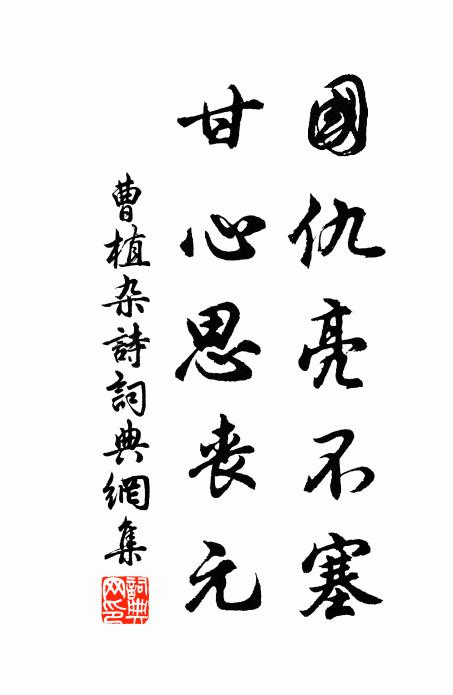 國仇亮不塞
甘心思喪元
曹植杂詩詞典網集
詞典網印